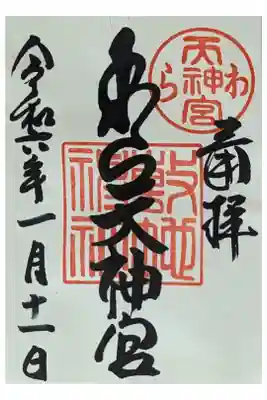 奉拝
わら天神宮
わら天神宮
敷地
神社
令和六年一月十一日